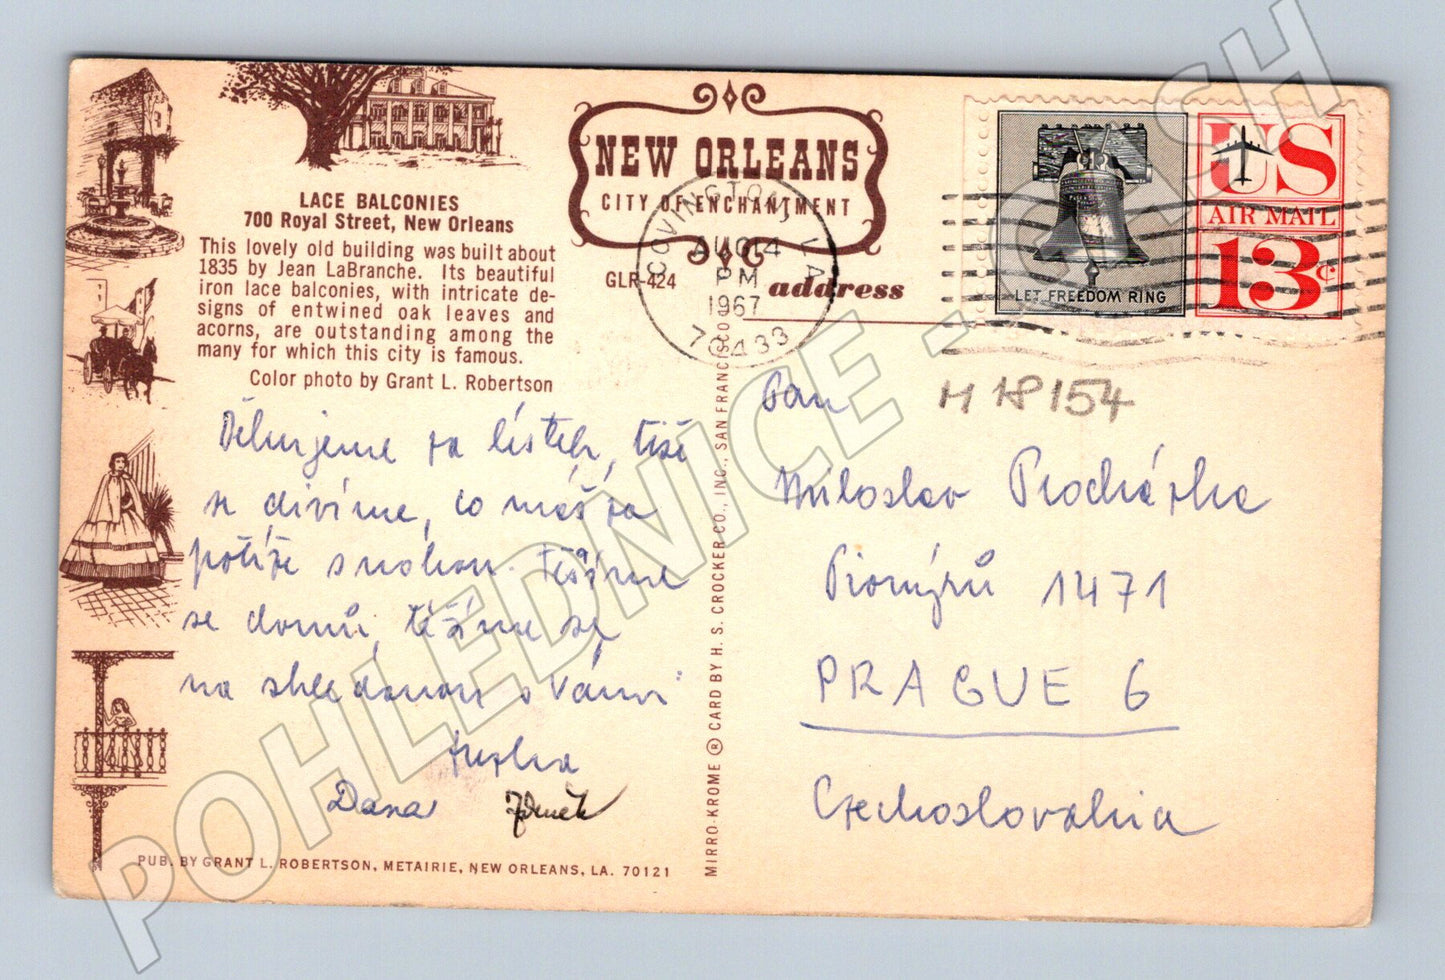 LACE BALCONIES
700 Royal Street, New Orleans
This lovely old building was built about
1835 by Jean LaBranche. Its beautiful
iron lace balconies, with intricate de-
signs of entwined oak leaves and
acorns, are outstanding among the
many for which this city is famous.
Color photo by Grant L. Robertson
NEW ORLEANS
CITY OF ENCHANTMENT
GLR-424
address
COVINGTON, LA
AUG 14
PM
1967
70433
LET FREEDOM RING
US
AIR MAIL
13c
M 18 154
Děkujeme za lístek, též
se divíme, co máš za
potíže s nohou. Těšíme
se domů, těšíme se
na shledanou s Vámi
Dana Zdeněk
Pan
Miloslav Procházka
Pionýrů 1471
PRAGUE 6
Czechoslovakia
MIRRO-KROME ® CARD BY H. S. CROCKER CO., INC., SAN FRANCISCO
PUB. BY GRANT L. ROBERTSON, METAIRIE, NEW ORLEANS, LA. 70121